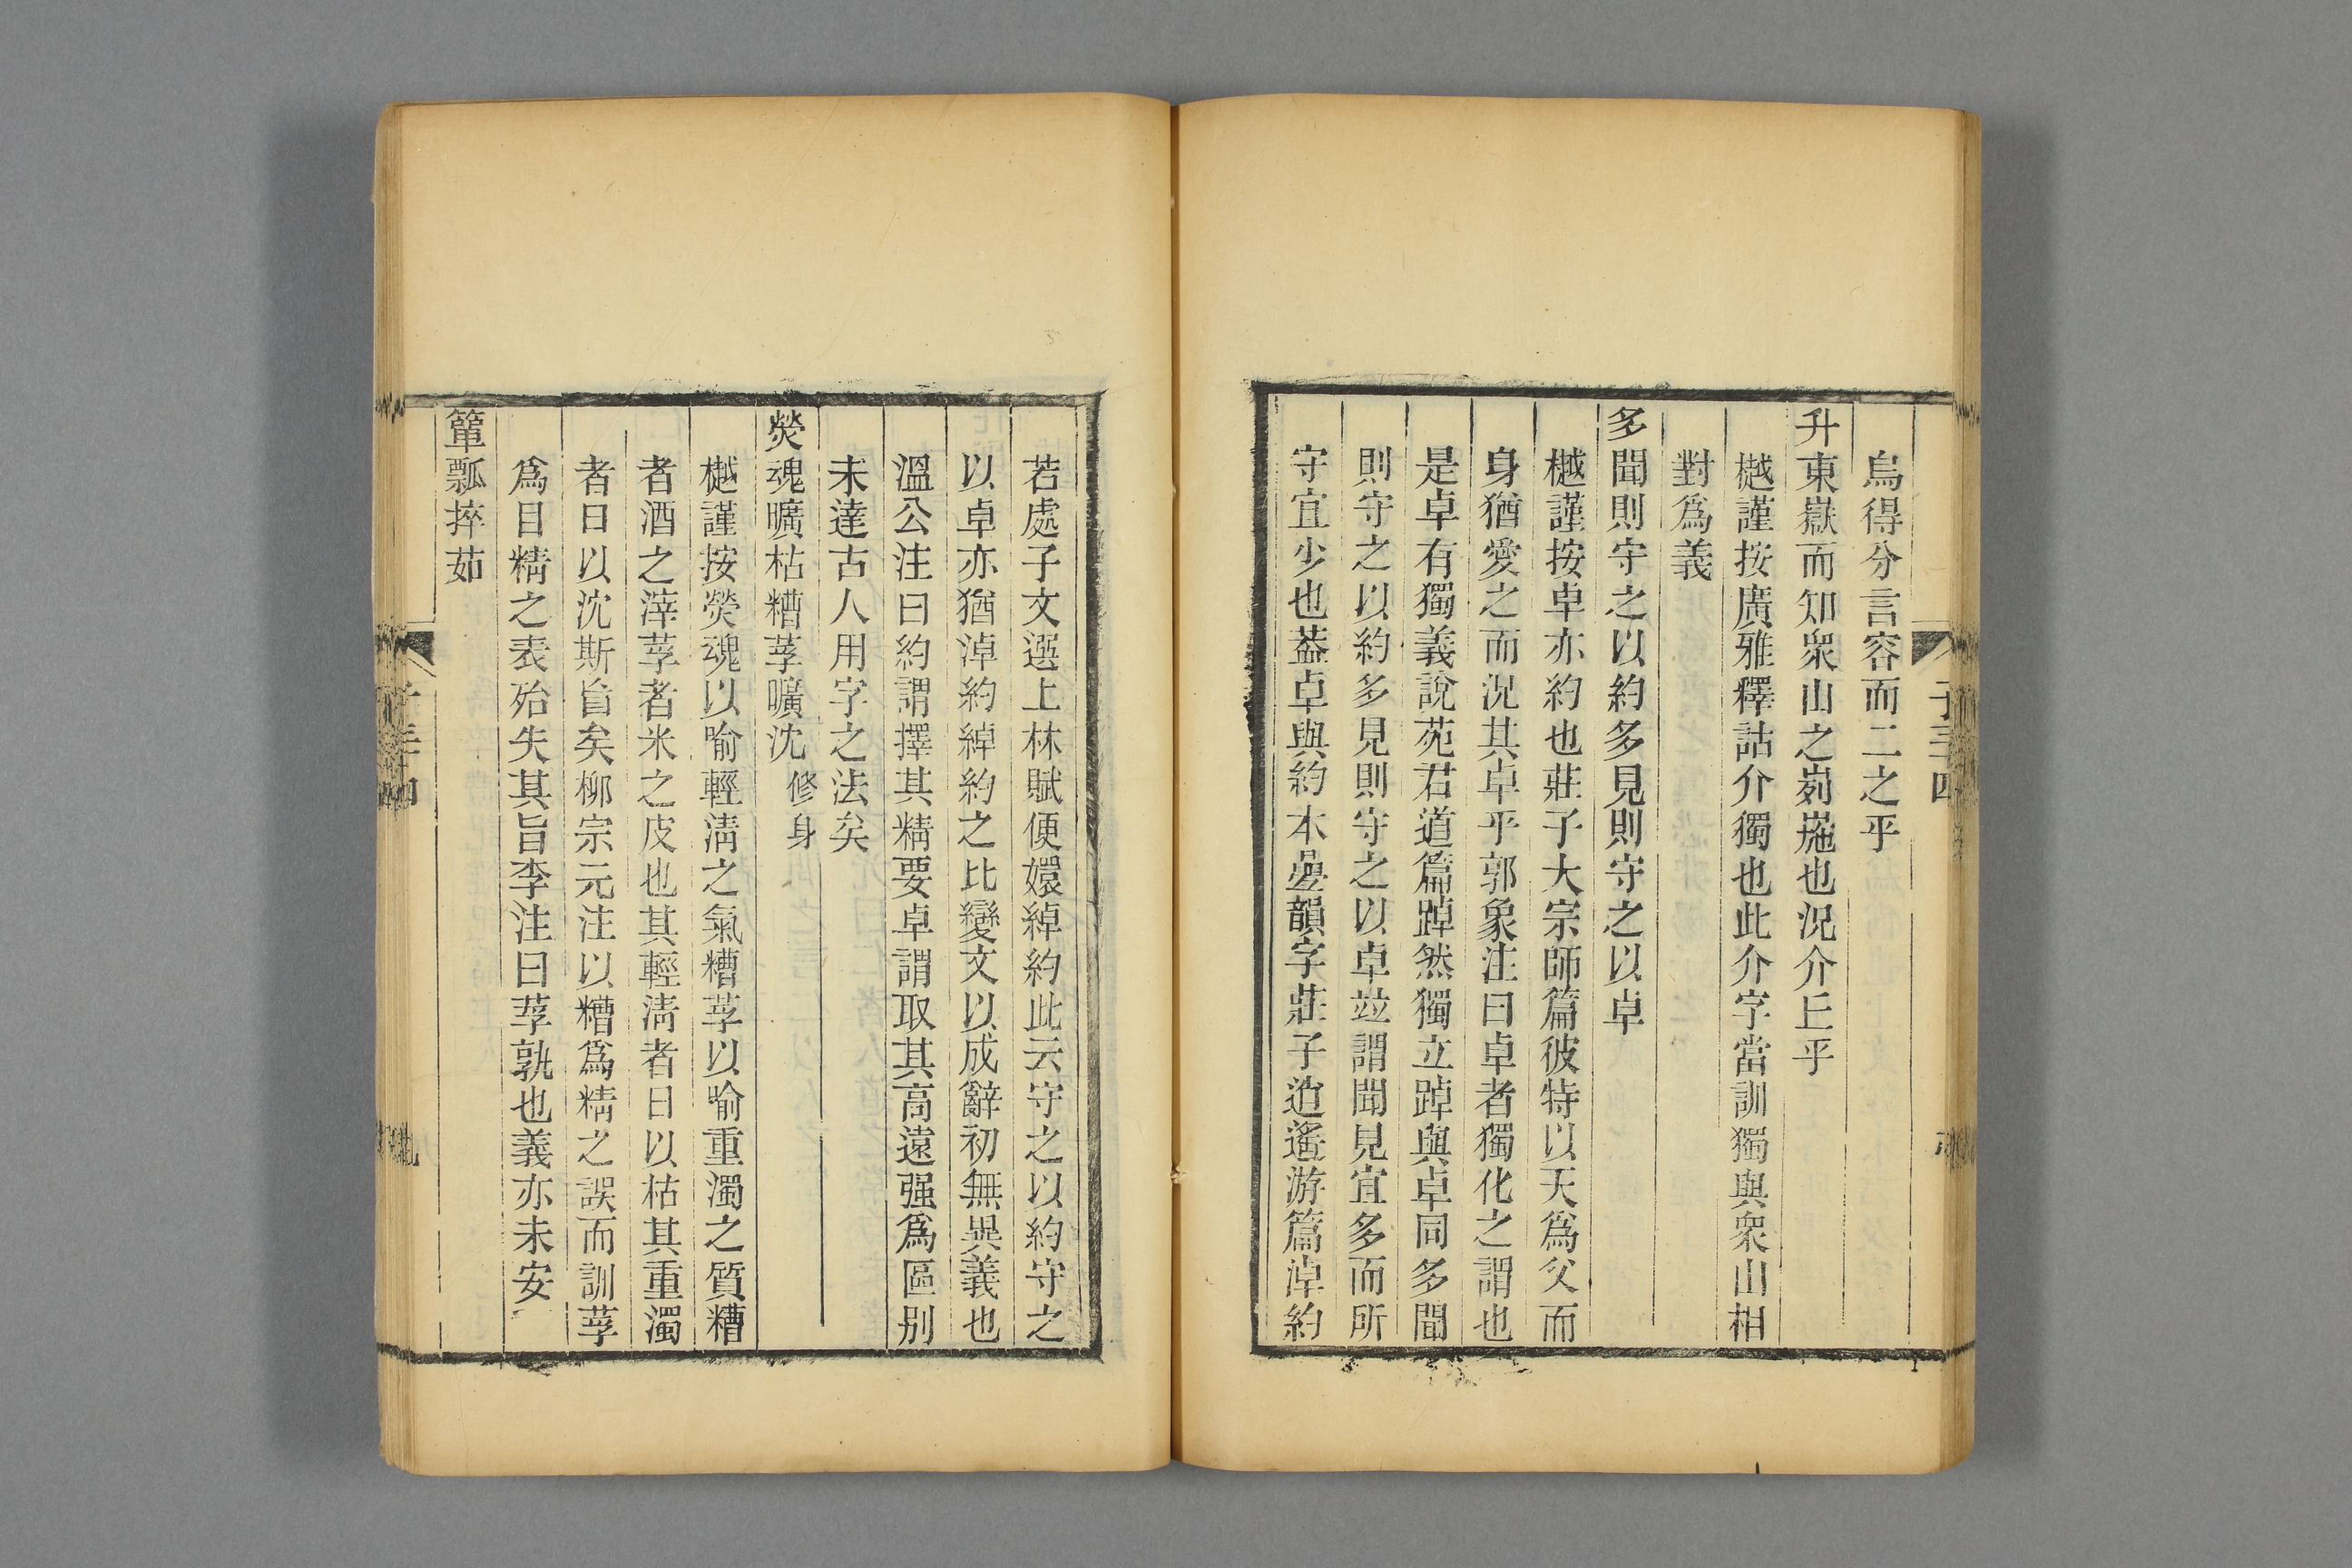 烏得分言容而二之乎
升東嶽而知衆山之峛崺也況介丘乎
樾謹按廣雅釋詁介獨也此介字當訓獨與衆山相
對爲義
多聞則守之以約多見則守之以卓
樾謹按卓亦約也莊子大宗師篇彼特以天爲父而
身猶愛之而況其卓乎郭象注曰卓者獨化之謂也
是卓有獨義說苑君道篇踔然獨立踔與卓同多聞
則守之以約多見則守之以卓竝謂聞見宜多而所
守宜少也葢卓與約本曡韻字莊子逍遙游篇淖約
若處子文選上林賦便嬛綽約此云守之以約守之
以卓亦猶淖約綽約之比變文以成辭初無異義也
溫公注曰約謂擇其精要卓謂取其高遠强爲區别
未達古人用字之法矣
熒魂曠枯糟莩曠沈 修身
樾謹按熒魂以喻輕淸之氣糟莩以喻重濁之質糟
者酒之滓莩者米之皮也其輕淸者日以枯其重濁
者日以沈斯旨矣柳宗元注以糟爲精之誤而訓莩
爲目精之表殆失其旨李注曰莩孰也義亦未安
簞瓢捽茹
子三十四